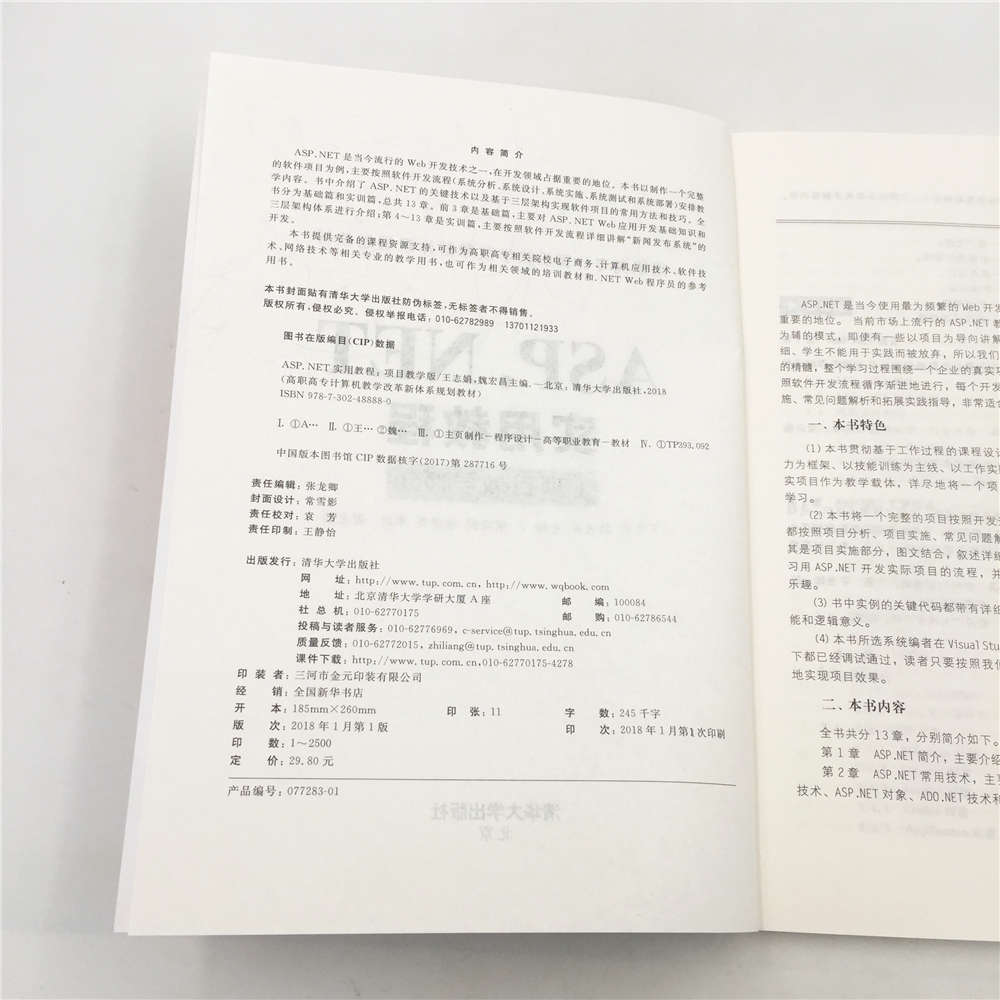 内 容 简 介
ASP.NET 是当今流行的 Web 开发技术之一,在开发领域占据重要的地位。本书以制作一个完整
的软件项目为例,主要按照软件开发流程(系统分析、系统设计、系统实施、系统测试和系统部署)安排教
学内容。书中介绍了 ASP.NET 的关键技术以及基于三层架构实现软件项目的常用方法和技巧。全
书分为基础篇和实训篇,总共 13 章。前 3 章是基础篇,主要对 ASP.NET Web 应用开发基础知识和
三层架构体系进行介绍;第 4～13 章是实训篇,主要按照软件开发流程详细讲解“新闻发布系统”的
开发。
本书提供完备的课程资源支持,可作为高职高专相关院校电子商务、计算机应用技术、软件技
术、网络技术等相关专业的教学用书,也可作为相关领域的培训教材和.NET Web 程序员的参考
用书。
本书封面贴有清华大学出版社防伪标签,无标签者不得销售。
版权所有,侵权必究。侵权举报电话:010-62782989 13701121933
图书在版编目(CIP)数据
ASP.NET 实用教程:项目教学版/王志娟,魏宏昌主编.—北京:清华大学出版社,2018
(高职高专计算机教学改革新体系规划教材)
ISBN 978-7-302-48888-0
Ⅰ. ①A… Ⅱ. ①王… ②魏… Ⅲ. ①主页制作－程序设计－高等职业教育－教材 Ⅳ. ①TP393.092
中国版本图书馆 CIP 数据核字(2017)第 287716 号
责任编辑:张龙卿
封面设计:常雪影
责任校对:袁 芳
责任印制:王静怡
出版发行:清华大学出版社
网 址:http://www.tup.com.cn, http://www.wqbook.com
地 址:北京清华大学学研大厦 A 座 邮 编:100084
社 总 机:010-62770175 邮 购:010-62786544
投稿与读者服务:010-62776969, c-service@tup.tsinghua.edu.cn
质量反馈:010-62772015, zhiliang@tup.tsinghua.edu.cn
课件下载:http://www.tup.com.cn,010-62770175-4278
印 装 者:三河市金元印装有限公司
经 销:全国新华书店
开 本:185mm×260mm 印 张:11 字 数:245 千字
版 次:2018 年 1 月第 1 版 印 次:2018 年 1 月第 1 次印刷
印 数:1～2500
定 价:29.80 元
产品编号:077283-01
ASP.NET 是当今使用最为频繁的 Web 开发
重要的地位。当前市场上流行的 ASP.NET 教
为辅的模式，即使有一些以项目为导向讲解
细、学生不能用于实践而被放弃，所以我们
的精髓，整个学习过程围绕一个企业的真实项
照软件开发流程循序渐进地进行，每个开发
施、常见问题解析和拓展实践指导，非常适合
一、本书特色
(1) 本书贯彻基于工作过程的课程设计
力为框架、以技能训练为主线、以工作实际
实项目作为教学载体，详尽地将一个项
学习。
(2) 本书将一个完整的项目按照开发
都按照项目分析、项目实施、常见问题解
其是项目实施部分，图文结合，叙述详细
习用 ASP.NET 开发实际项目的流程，并
乐趣。
(3) 书中实例的关键代码都带有详细
能和逻辑意义。
(4) 本书所选系统编者在 Visual Stu
下都已经调试通过，读者只要按照我们
地实现项目效果。
二、本书内容
全书共分 13 章，分别简介如下。
第 1 章 ASP.NET 简介，主要介绍
第 2 章 ASP.NET 常用技术，主要
技术、ASP.NET 对象、ADO.NET 技术和